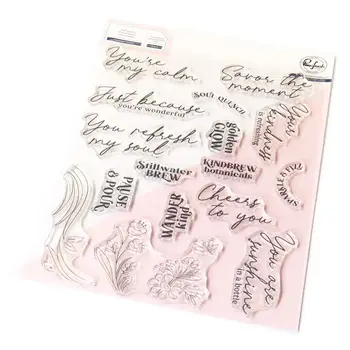 You're
my calm
Savor the
moment
Just because
you're wonderful
SOUL QUENCH
Your
kindness
is refreshing
You refresh
my soul
golden
GLOW
Stillwater
BREW
KINDBREW
botanicals
PAUSE
& POUR
WANDER
kind
Cheers
to you
You are
sunshine
in a bottle